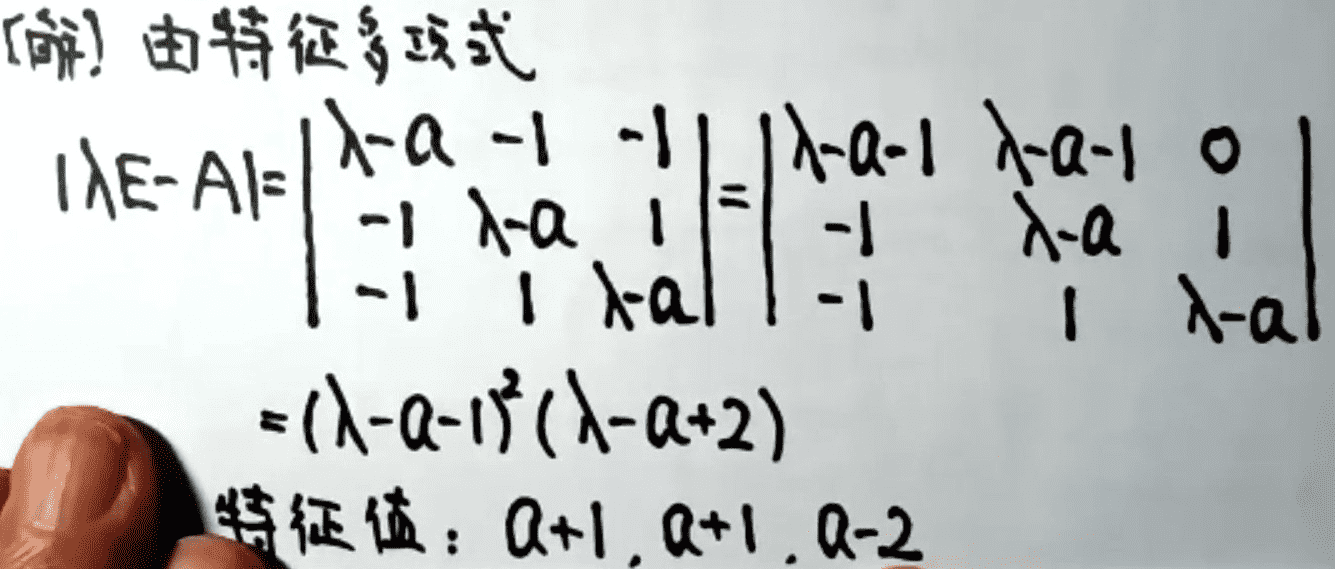 [解] 由特征多项式
|λE-A|=|λ-a -1 -1; -1 λ-a 1; -1 1 λ-a|=|λ-a-1 λ-a-1 0; -1 λ-a 1; -1 1 λ-a|
=(λ-a-1)²(λ-a+2)
特征值:a+1,a+1,a-2